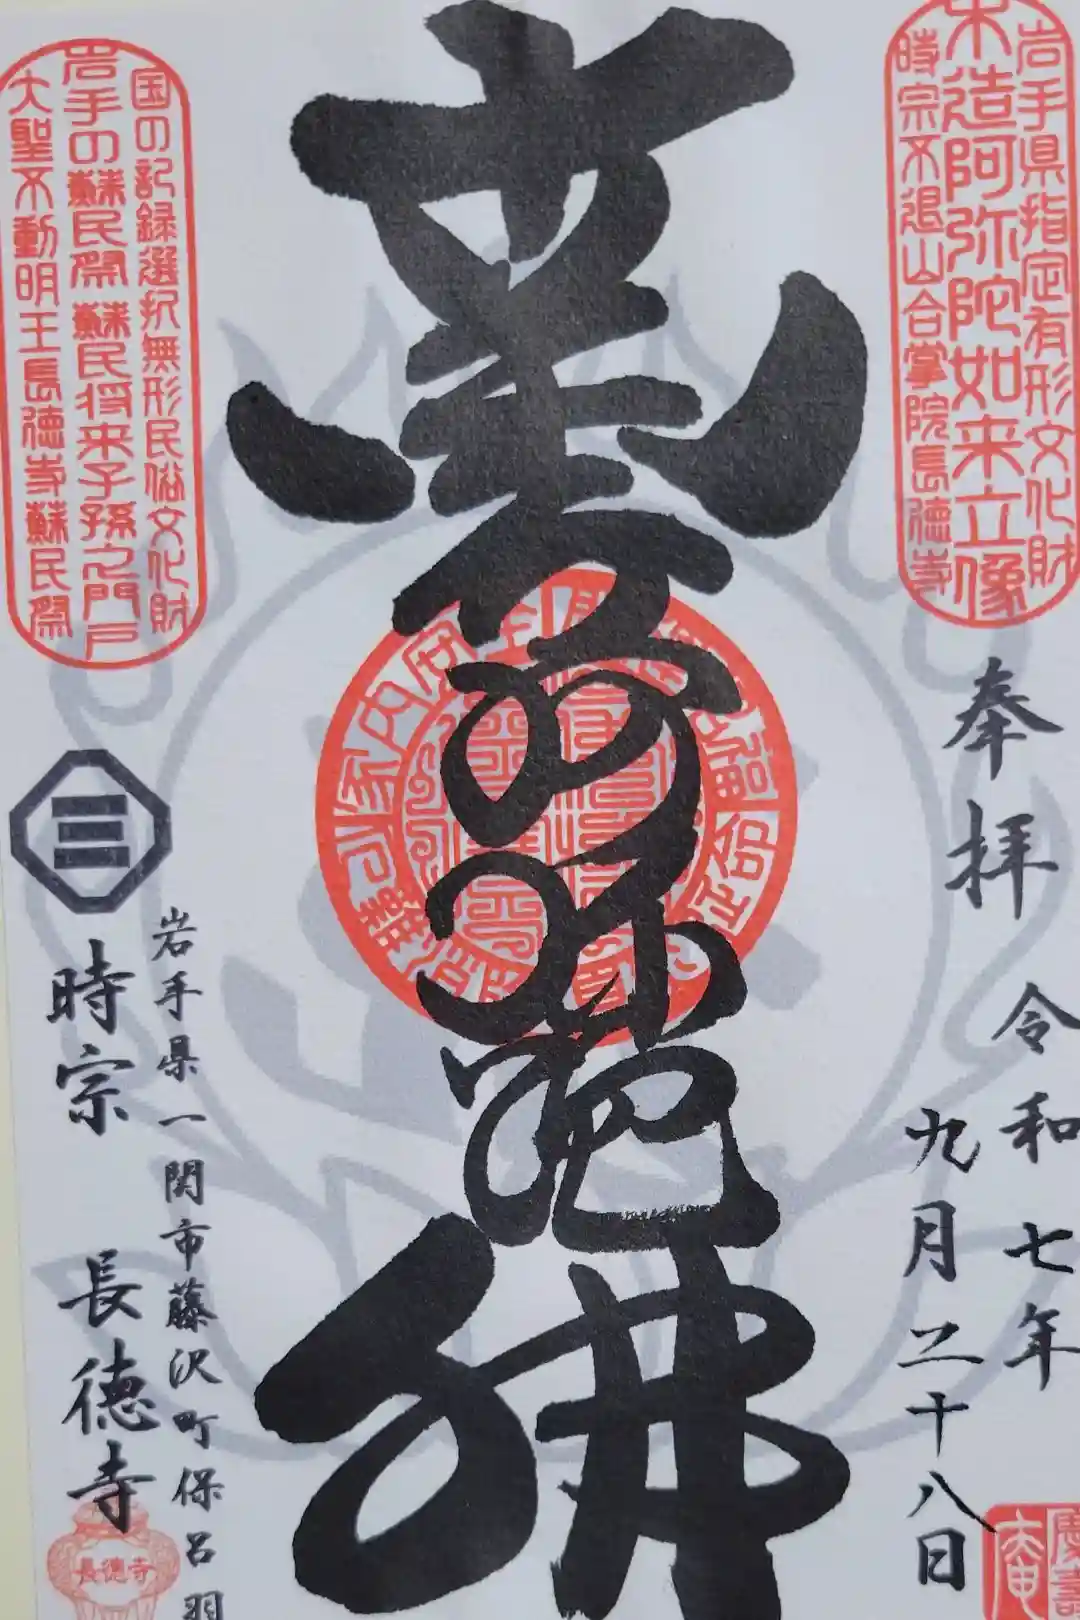 岩手県指定有形文化財
木造阿弥陀如来立像
時宗不退山合掌院長徳寺
奉拝
令和七年
九月二十八日
南無阿弥陀佛
国の記録選択無形民俗文化財
岩手の蘇民祭 蘇民将来子孫之門戸
大聖不動明王長徳寺蘇民祭
岩手県一関市藤沢町保呂羽
時宗 長徳寺
長德寺